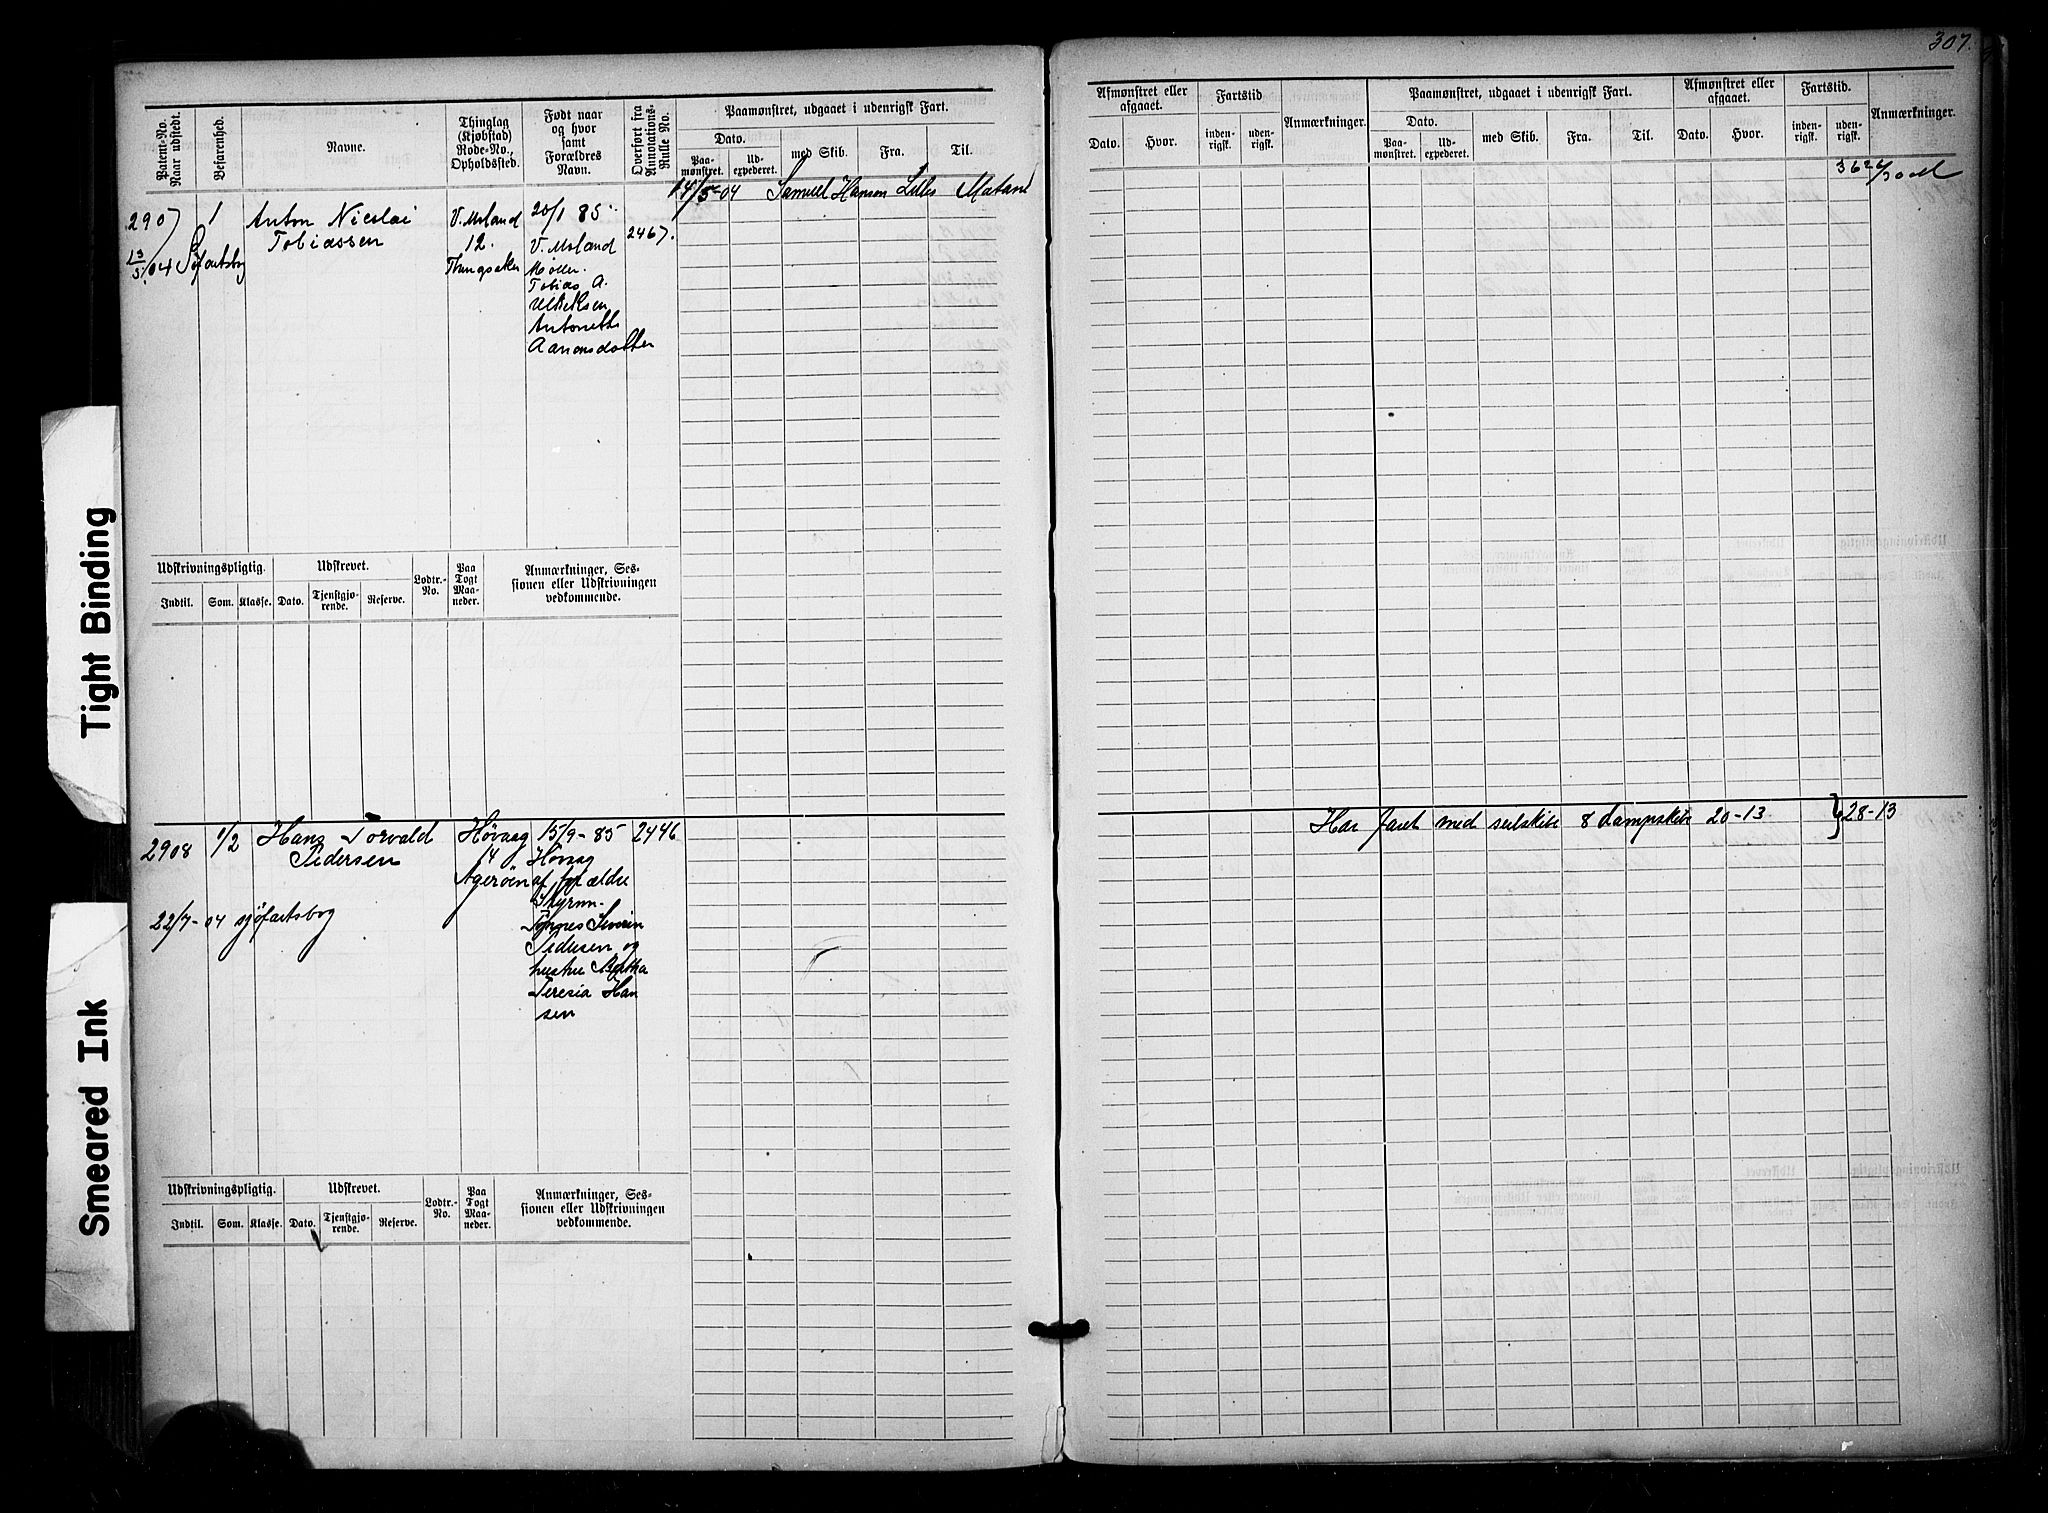 307.
Patent-No. Naar udstedt.
Befarenhed.
Navne.
Thinglag (Kjøbstad) Rode-No., Opholdssted.
Født naar og hvor samt Forældres Navn.
Overført fra Annotations-Rulle No.
Paamønstret, udgaaet i udenrigsk Fart.
Dato.
Paamønstret.
Udexpederet.
med Skib.
Fra.
Til.
Afmønstret eller afgaaet.
Dato.
Hvor.
Fartstid
indenrigsk.
udenrigsk.
Anmærkninger.
Paamønstret, udgaaet i udenrigsk Fart.
Dato.
Paamønstret.
Udexpederet.
med Skib.
Fra.
Til.
Afmønstret eller afgaaet.
Dato.
Hvor.
Fartstid.
indenrigsk.
udenrigsk.
Anmærkninger.
2907
13/5/04
1
Søfartsbog
Anton Nicolai
Tobiassen
V. Moland
12.
20/1 85
V. Moland
Møller
Tobias A.
Antonette
Aanonsdatter
2467.
14/5-04 Samuel Hanson
Udskrivningspligtig.
Indtil.
Som.
Klasse.
Udskrevet.
Dato.
Tjenstgjørende.
Reserve.
Lodtr.-No.
Paa Togt Maaneder.
Anmærkninger, Sessionen eller Udskrivningen vedkommende.
2908
1/2
Hans Torvald
Pedersen
22/7-04 sjøfartsbog
Høvaag
14
Agerøen
15/9-85
Høvaag
af forældre
Styrm.
Pedersen og
hustru Bertha
Teresia Han
sen
2446
Har faret med seilskibe & dampskibe 20-13
28-13
Udskrivningspligtig.
Indtil.
Som.
Klasse.
Udskrevet.
Dato.
Tjenstgjørende.
Reserve.
Lodtr.-No.
Paa Togt Maaneder.
Anmærkninger, Sessionen eller Udskrivningen vedkommende.
Tight Binding
Smeared Ink